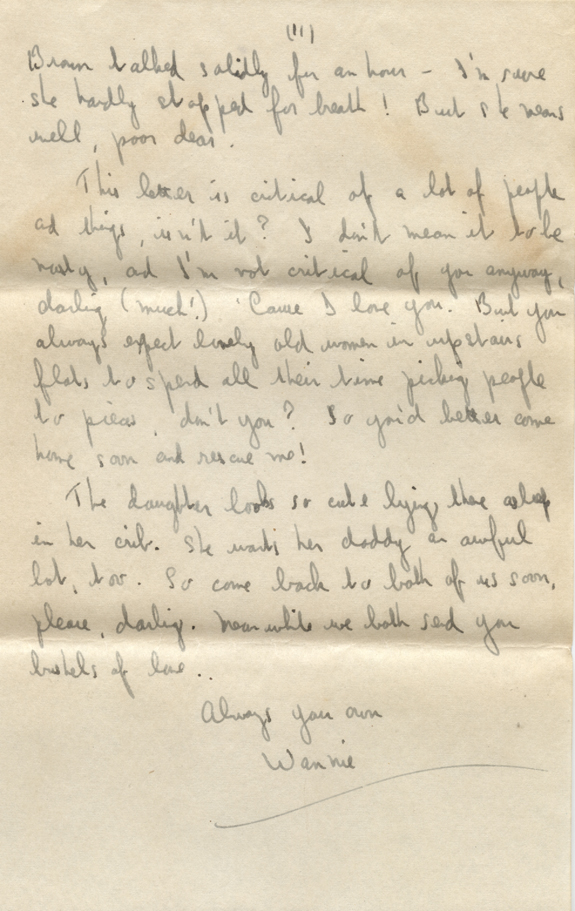 (11)
Brown talked solidly for an hour - I'm sure
she hardly stopped for breath! But she means
well, poor dear.
This letter is critical of a lot of people
ad things, isn't it? I don't mean it to be
nasty, ad I'm not critical of you anyway,
darlig (much!) 'Cause I love you. But you
always expect lonely old women in upstairs
flats to sped all their time picking people
to pieces, don't you? So you'd better come
home soon and rescue me!
The daughter looks so cute lying there asleep
in her crib. She wants her daddy an awful
lot, too. So come back to both of us soon,
please, darlig. Meanwhile we both sed you
bushels of love..
Always your own
Wannie